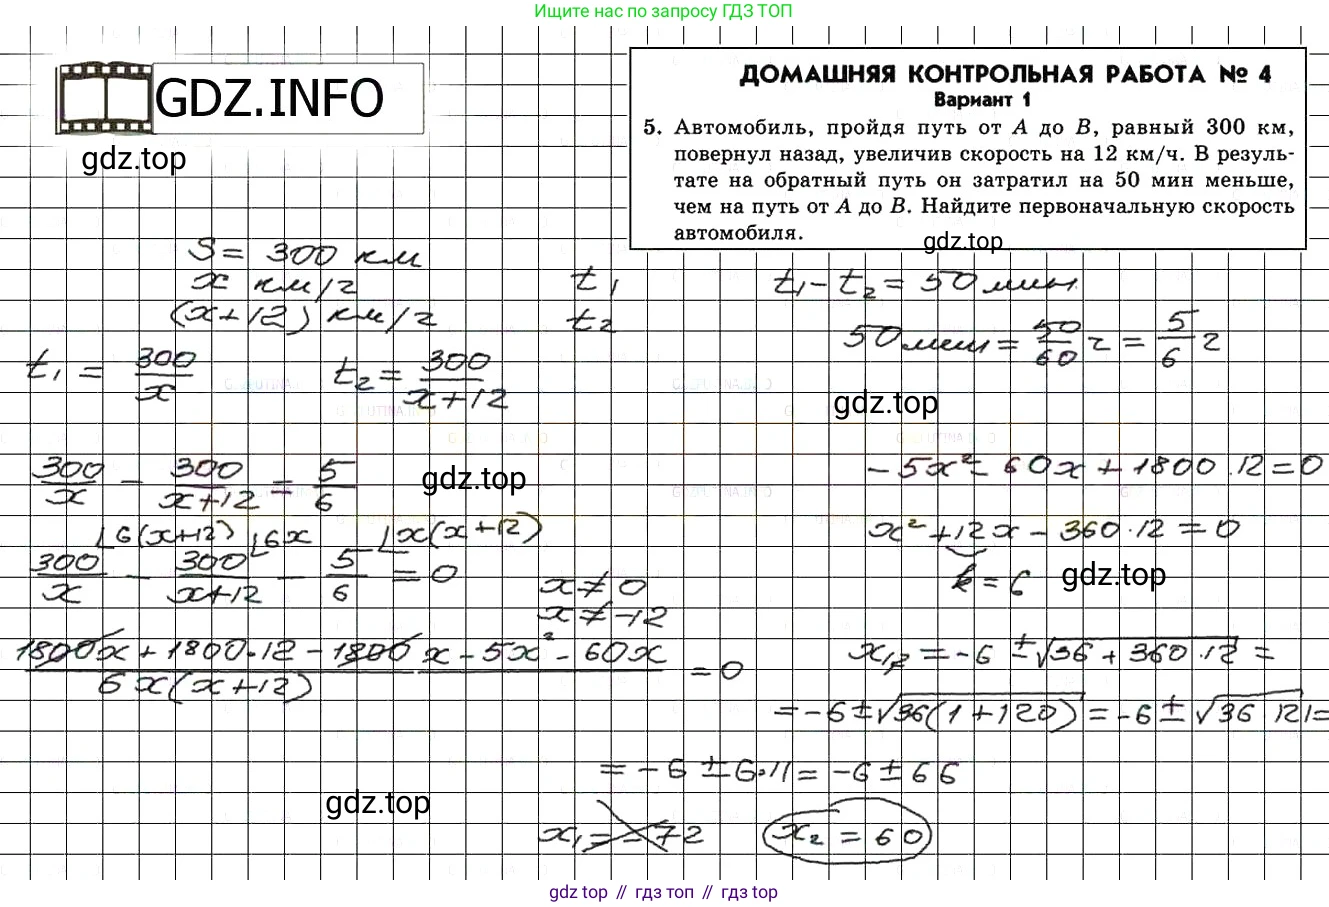 Ищите нас по запросу ГДЗ ТОП
GDZ.INFO
gdz.top
ДОМАШНЯЯ КОНТРОЛЬНАЯ РАБОТА № 4
Вариант 1
5. Автомобиль, пройдя путь от A до B, равный 300 км,
повернул назад, увеличив скорость на 12 км/ч. В резуль-
тате на обратный путь он затратил на 50 мин меньше,
чем на путь от A до B. Найдите первоначальную скорость
автомобиля.
gdz.top
S = 300 км
x км/ч t₁ t₁ - t₂ = 50 мин
(x+12) км/ч t₂
50 мин = 50/60 ч = 5/6 ч
t₁ = 300/x t₂ = 300/(x+12)
gdz.top
300/x - 300/(x+12) = 5/6
gdz.top
└6(x+12) └6x └x(x+12)
300/x - 300/(x+12) - 5/6 = 0
x ≠ 0
x ≠ -12
(1800x + 1800·12 - 1800x - 5x² - 60x)/(6x(x+12)) = 0
-5x² - 60x + 1800·12 = 0
x² + 12x - 360·12 = 0
k = 6
gdz.top
x₁,₂ = -6 ± √(36 + 360·12) =
= -6 ± √(36(1+120)) = -6 ± √(36·121) =
= -6 ± 6·11 = -6 ± 66
gdz.top
x₁ = -72 x₂ = 60
gdz top // гдз топ // гдз top